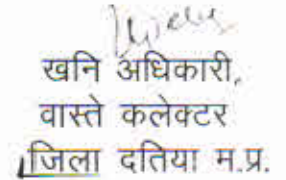 खनि अधिकारी,
वास्ते कलेक्टर
जिला दतिया म.प्र.